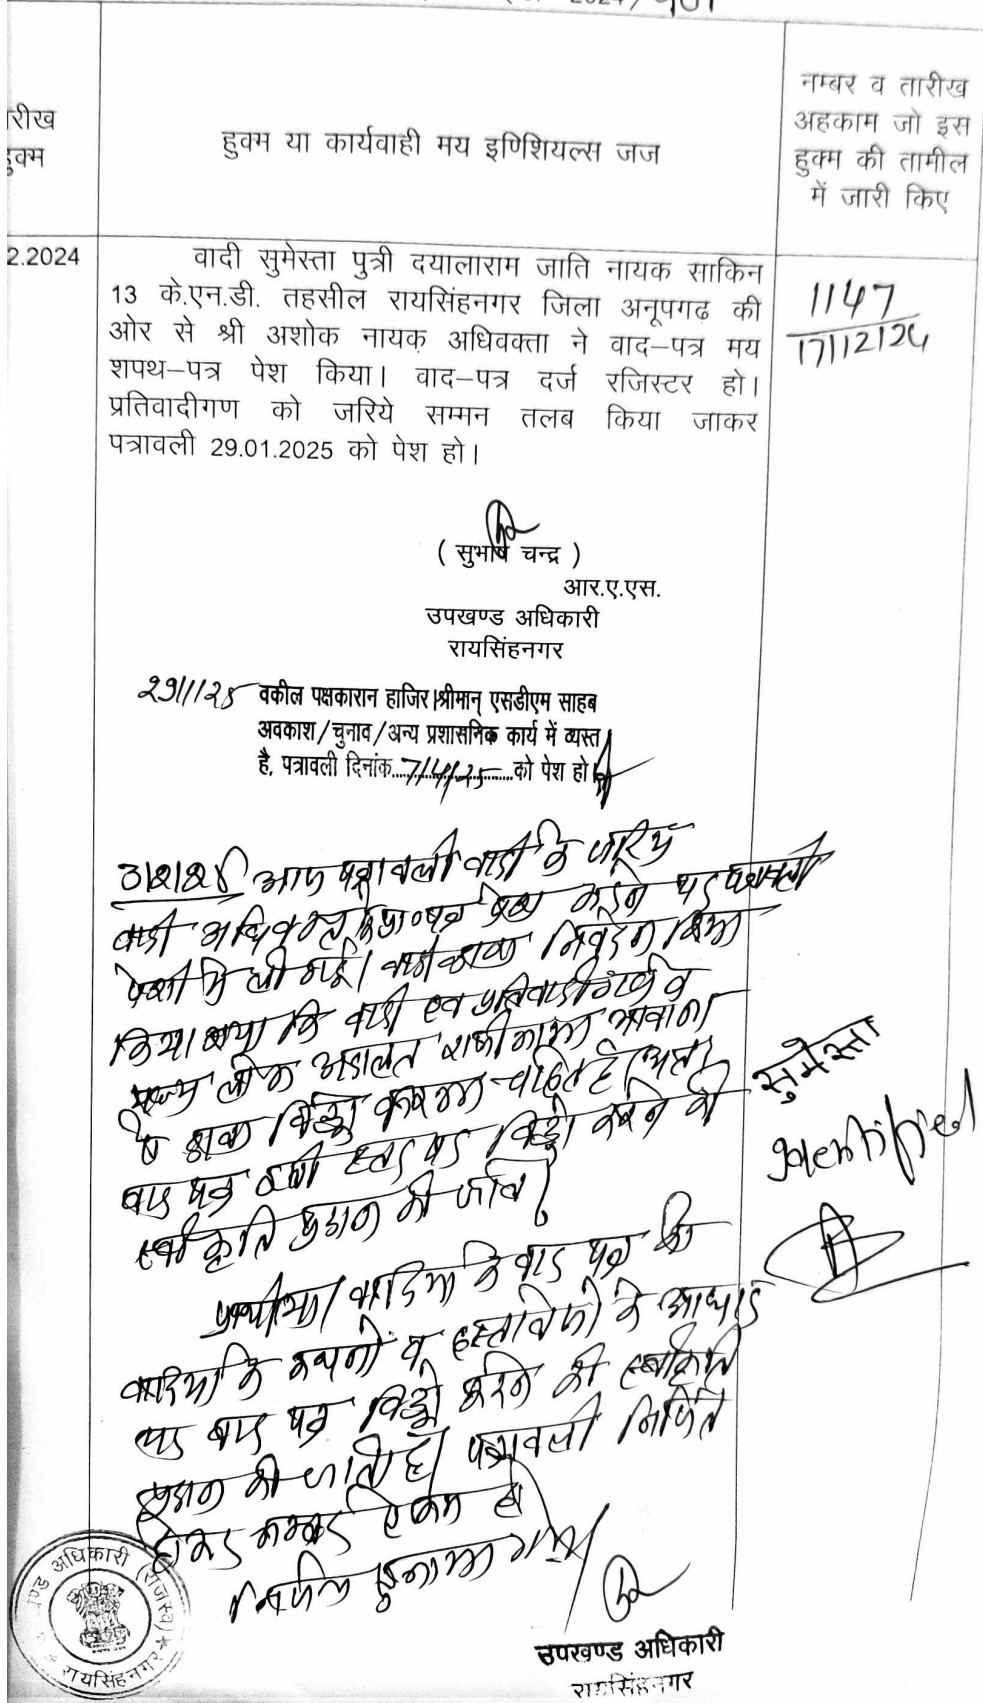 2024/
रीख
हुक्म
हुक्म या कार्यवाही मय इणिशियल्स जज
नम्बर व तारीख
अहकाम जो इस
हुक्म की तामील
में जारी किए
2.2024
वादी सुमेस्ता पुत्री दयालाराम जाति नायक साकिन
13 के.एन.डी. तहसील रायसिंहनगर जिला अनूपगढ की
ओर से श्री अशोक नायक अधिवक्ता ने वाद–पत्र मय
शपथ–पत्र पेश किया। वाद–पत्र दर्ज रजिस्टर हो।
प्रतिवादीगण को जरिये सम्मन तलब किया जाकर
पत्रावली 29.01.2025 को पेश हो।
1147
17/12/24
( सुभाष चन्द्र )
आर.ए.एस.
उपखण्ड अधिकारी
रायसिंहनगर
29/1/25 वकील पक्षकारान हाजिर।श्रीमान् एसडीएम साहब
अवकाश/चुनाव/अन्य प्रशासनिक कार्य में व्यस्त
है, पत्रावली दिनांक....7/4/25....को पेश हो
पत्रावली वादी के जरिये
वादी अधिवक्ता पेश करने पर पत्रावली
पेशी में ली गई। निवेदन किया
किया गया कि वादी एवं प्रतिवादीगण
लोक अदालत राजीनामा
विड्रो चाहते है। अतः
वाद पत्र इसी स्तर पर विड्रो करने की
स्वीकृति प्रदान की जावे।
सुमेस्ता
Identified
प्रार्थीया/वादिया के वाद पत्र
वादिया के कथनों व दस्तावेजों के आधार
पर वाद पत्र विड्रो करने की स्वीकृति
प्रदान की जाती है। पत्रावली निर्णित
होकर नम्बर से कम हो
निर्णय सुनाया गया।
उपखण्ड अधिकारी
रायसिंहनगर
उपखण्ड अधिकारी (राजस्व)
रायसिंहनगर